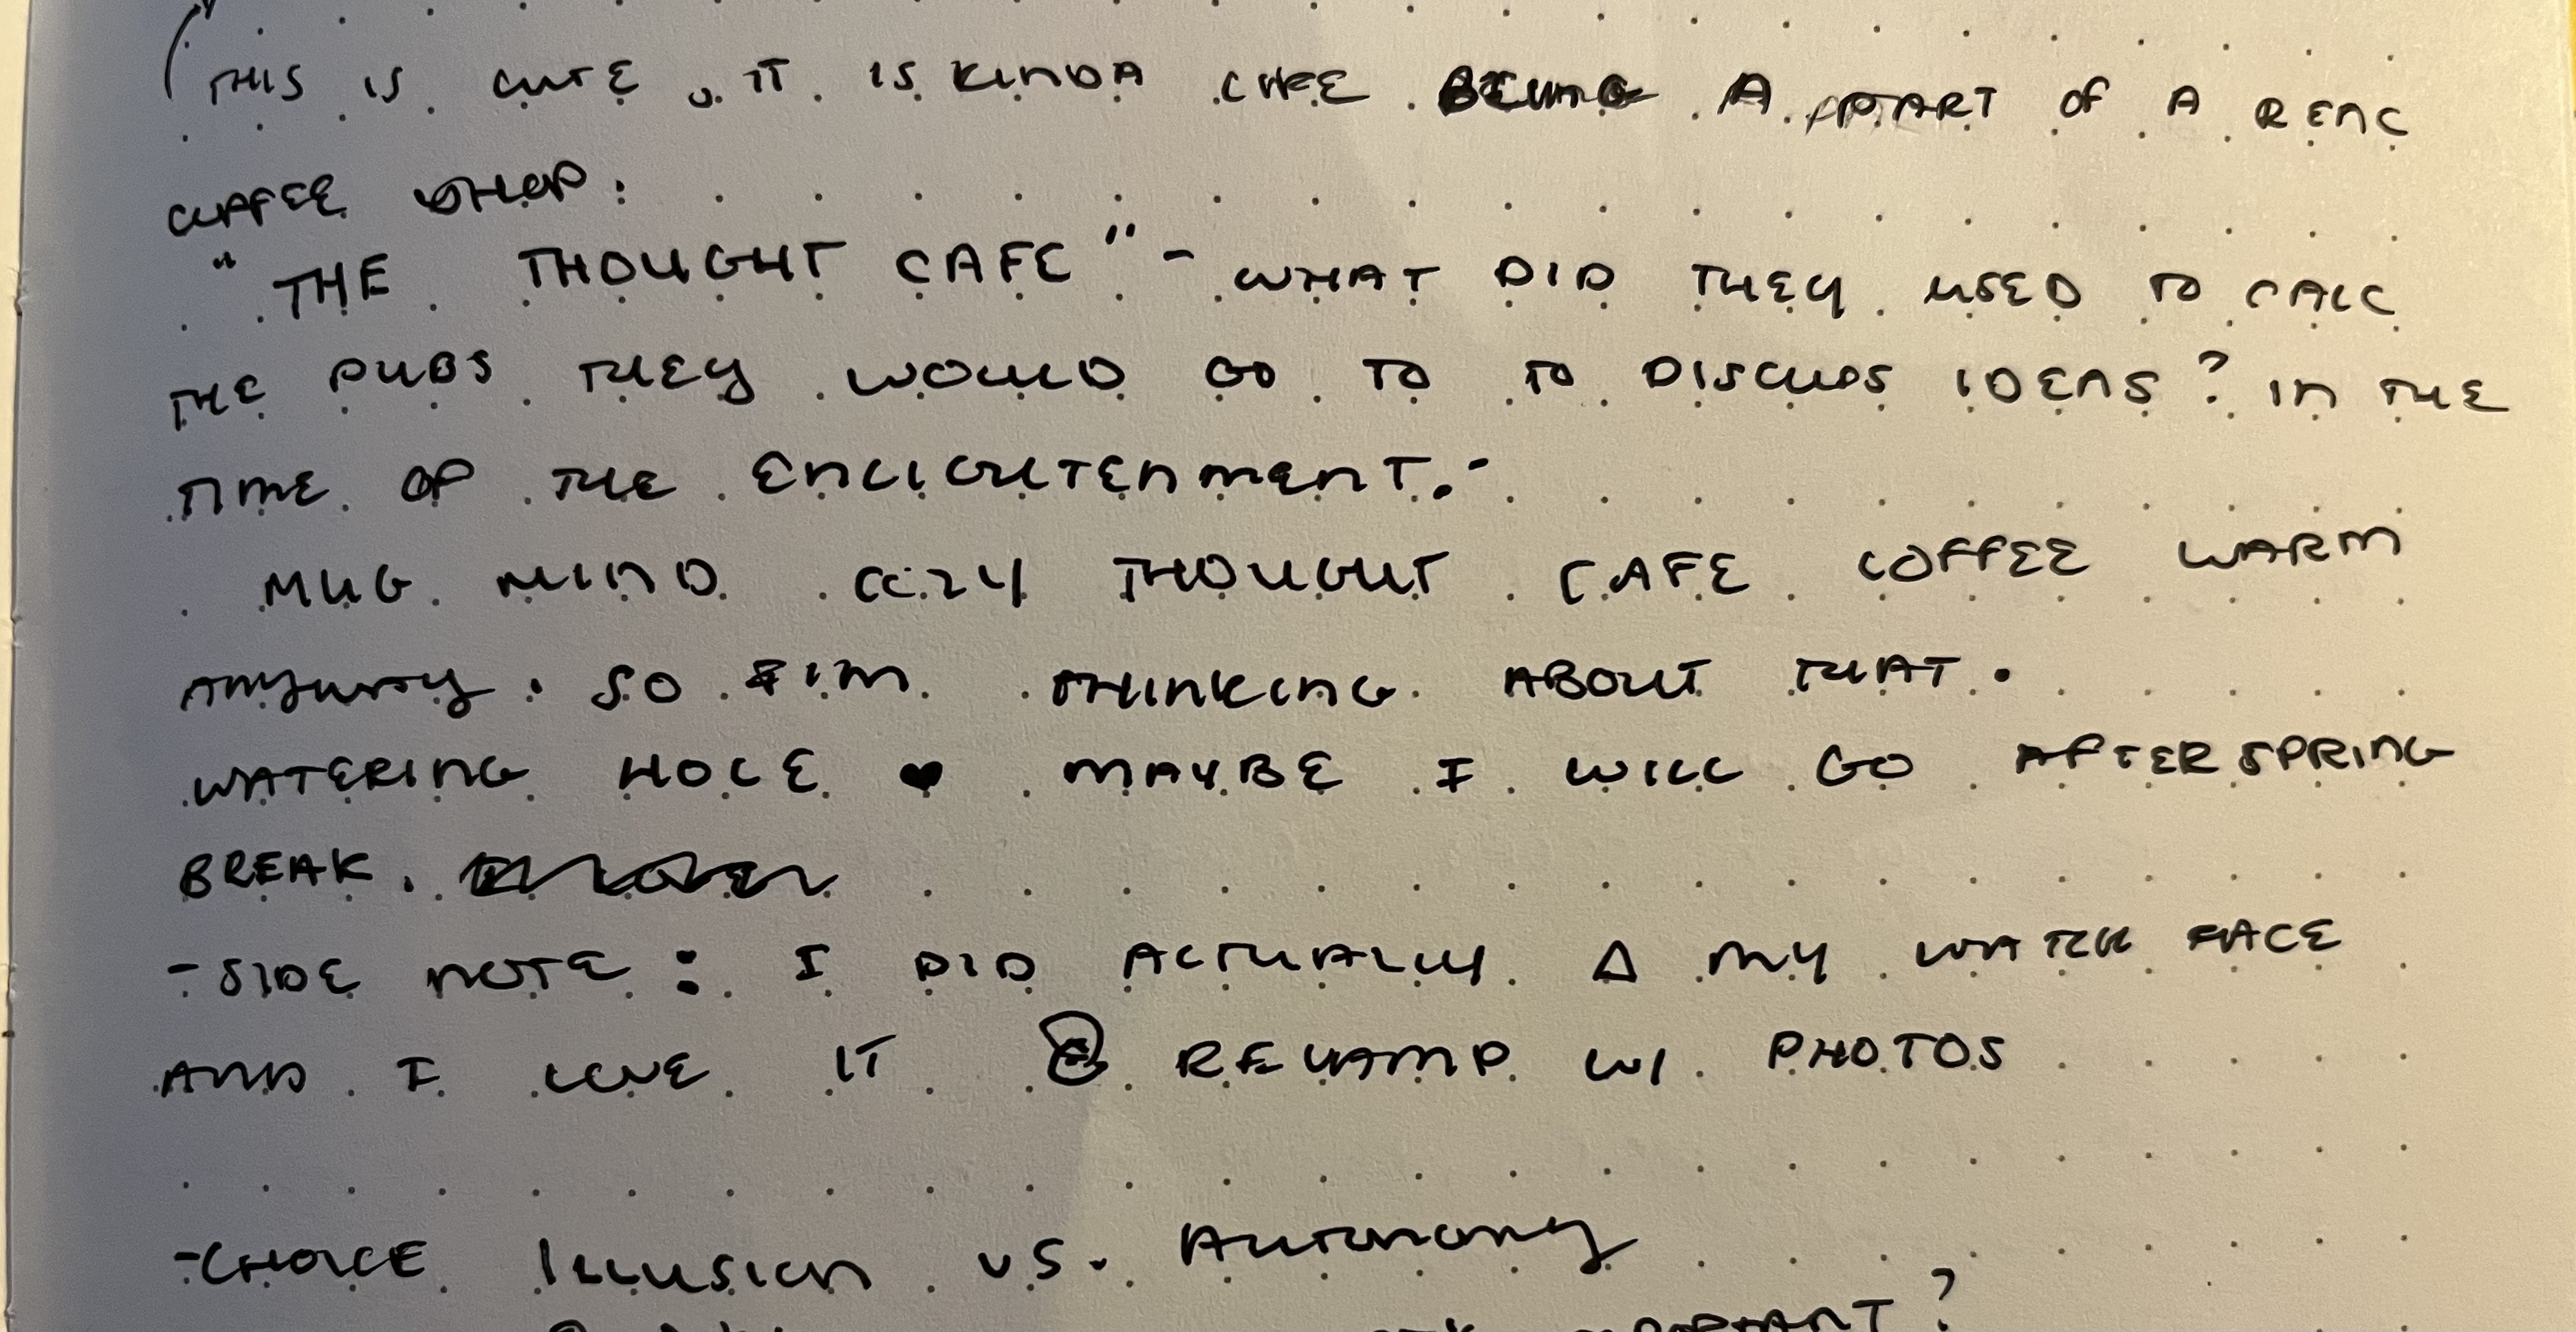 THIS IS CUTE. IT IS KINDA LIKE BEING A PART OF A REAL
COFFEE SHOP.
"THE THOUGHT CAFE" - WHAT DID THEY USED TO CALL
THE PUBS THEY WOULD GO TO TO DISCUSS IDEAS? IN THE
TIME OF THE ENLIGHTENMENT.-
MUG MIND COZY THOUGHT CAFE COFFEE WARM
ANYWAY. SO I'M THINKING ABOUT THAT.
WATERING HOLE ♥ MAYBE I WILL GO AFTER SPRING
BREAK.
-SIDE NOTE: I DID ACTUALLY Δ MY WATCH FACE
AND I LOVE IT REVAMP W/ PHOTOS
-CHOICE ILLUSION VS. AUTONOMY